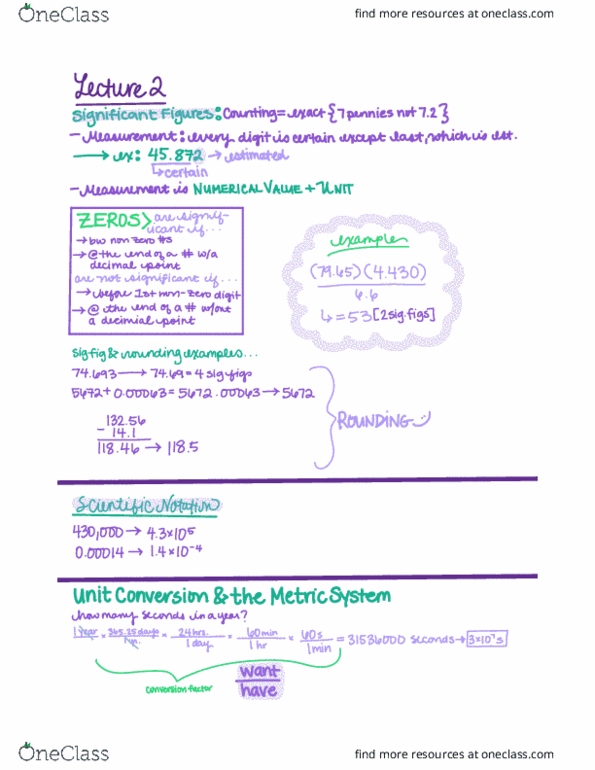 OneClass
find more resources at oneclass.com
Lecture 2
Significant Figures: Counting = exact {7 pennies not 7.2}
- Measurement: every digit is certain except last, which is est.
→ ex: 45.872 → estimated
↳ certain
- Measurement is NUMERICAL VALUE + UNIT
ZEROS > are signif-
icant if...
→ bw non zero #s
→ @ the end of a # w/a
decimal point
are not significant if...
→ before 1st non-zero digit
→ @ the end of a # w/out
a decimial point
example
(79.65)(4.430)
6.6
↳ = 53 [2 sig. figs]
Sig fig & rounding examples...
74.693 → 74.69 = 4 sig figs
5672 + 0.00063 = 5672.00063 → 5672
132.56
- 14.1
118.46 → 118.5
ROUNDING
Scientific Notation
430,000 → 4.3×10⁵
0.00014 → 1.4×10⁻⁴
Unit Conversion & the Metric System
how many seconds in a year?
1 year × 365.25 days = 24 hrs. = 60 min × 60 s = 31536000 seconds → 3×10⁷s
1 day 1 hr 1 min
conversion factor
want
have
OneClass
find more resources at oneclass.com